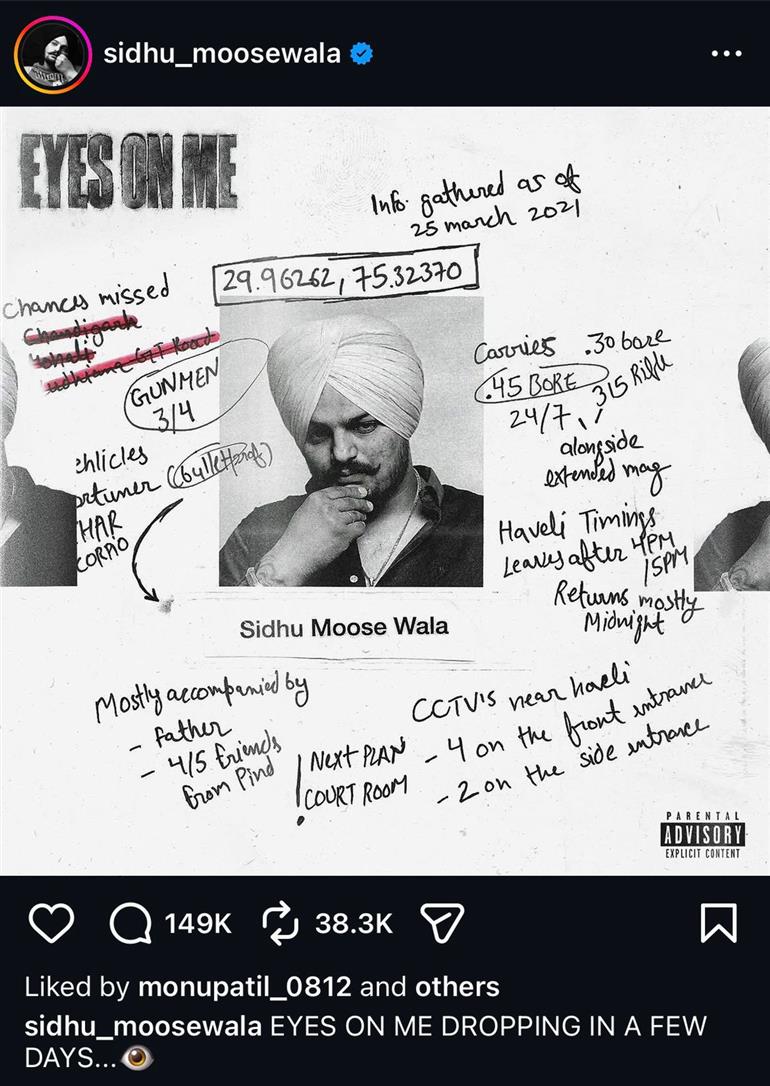 sidhu_moosewala
EYES ON ME
Info gathered as of
25 march 2021
29.96262, 75.32370
Chances missed
Chandigarh
Mohali
udhiana GT Road
GUNMEN
3/4
ehlicles
ortuner (bulletproof)
HAR
CORPIO
Carries .30 bore
.45 BORE 315 Rifle
24/7
alongside
extended mag
Haveli Timings
Leaves after 4PM
/5PM
Returns mostly
Midnight
Sidhu Moose Wala
Mostly accompanied by
- Father
- 4/5 friends
from Pind
! NEXT PLAN
COURT ROOM
CCTV's near haveli
- 4 on the front entrance
- 2 on the side entrance
PARENTAL
ADVISORY
EXPLICIT CONTENT
149K 38.3K
Liked by monupatil_0812 and others
sidhu_moosewala EYES ON ME DROPPING IN A FEW
DAYS...👁️